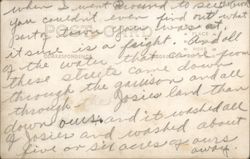 when I went around to see
you couldn't even find out what
sort a town yours was
it sure is a fright. And all
of the water that came from
these streets came down
through the garrison and all
through Josies land than
down ours and it washed all
of Josies and washed about
five or six acres of ours
away.